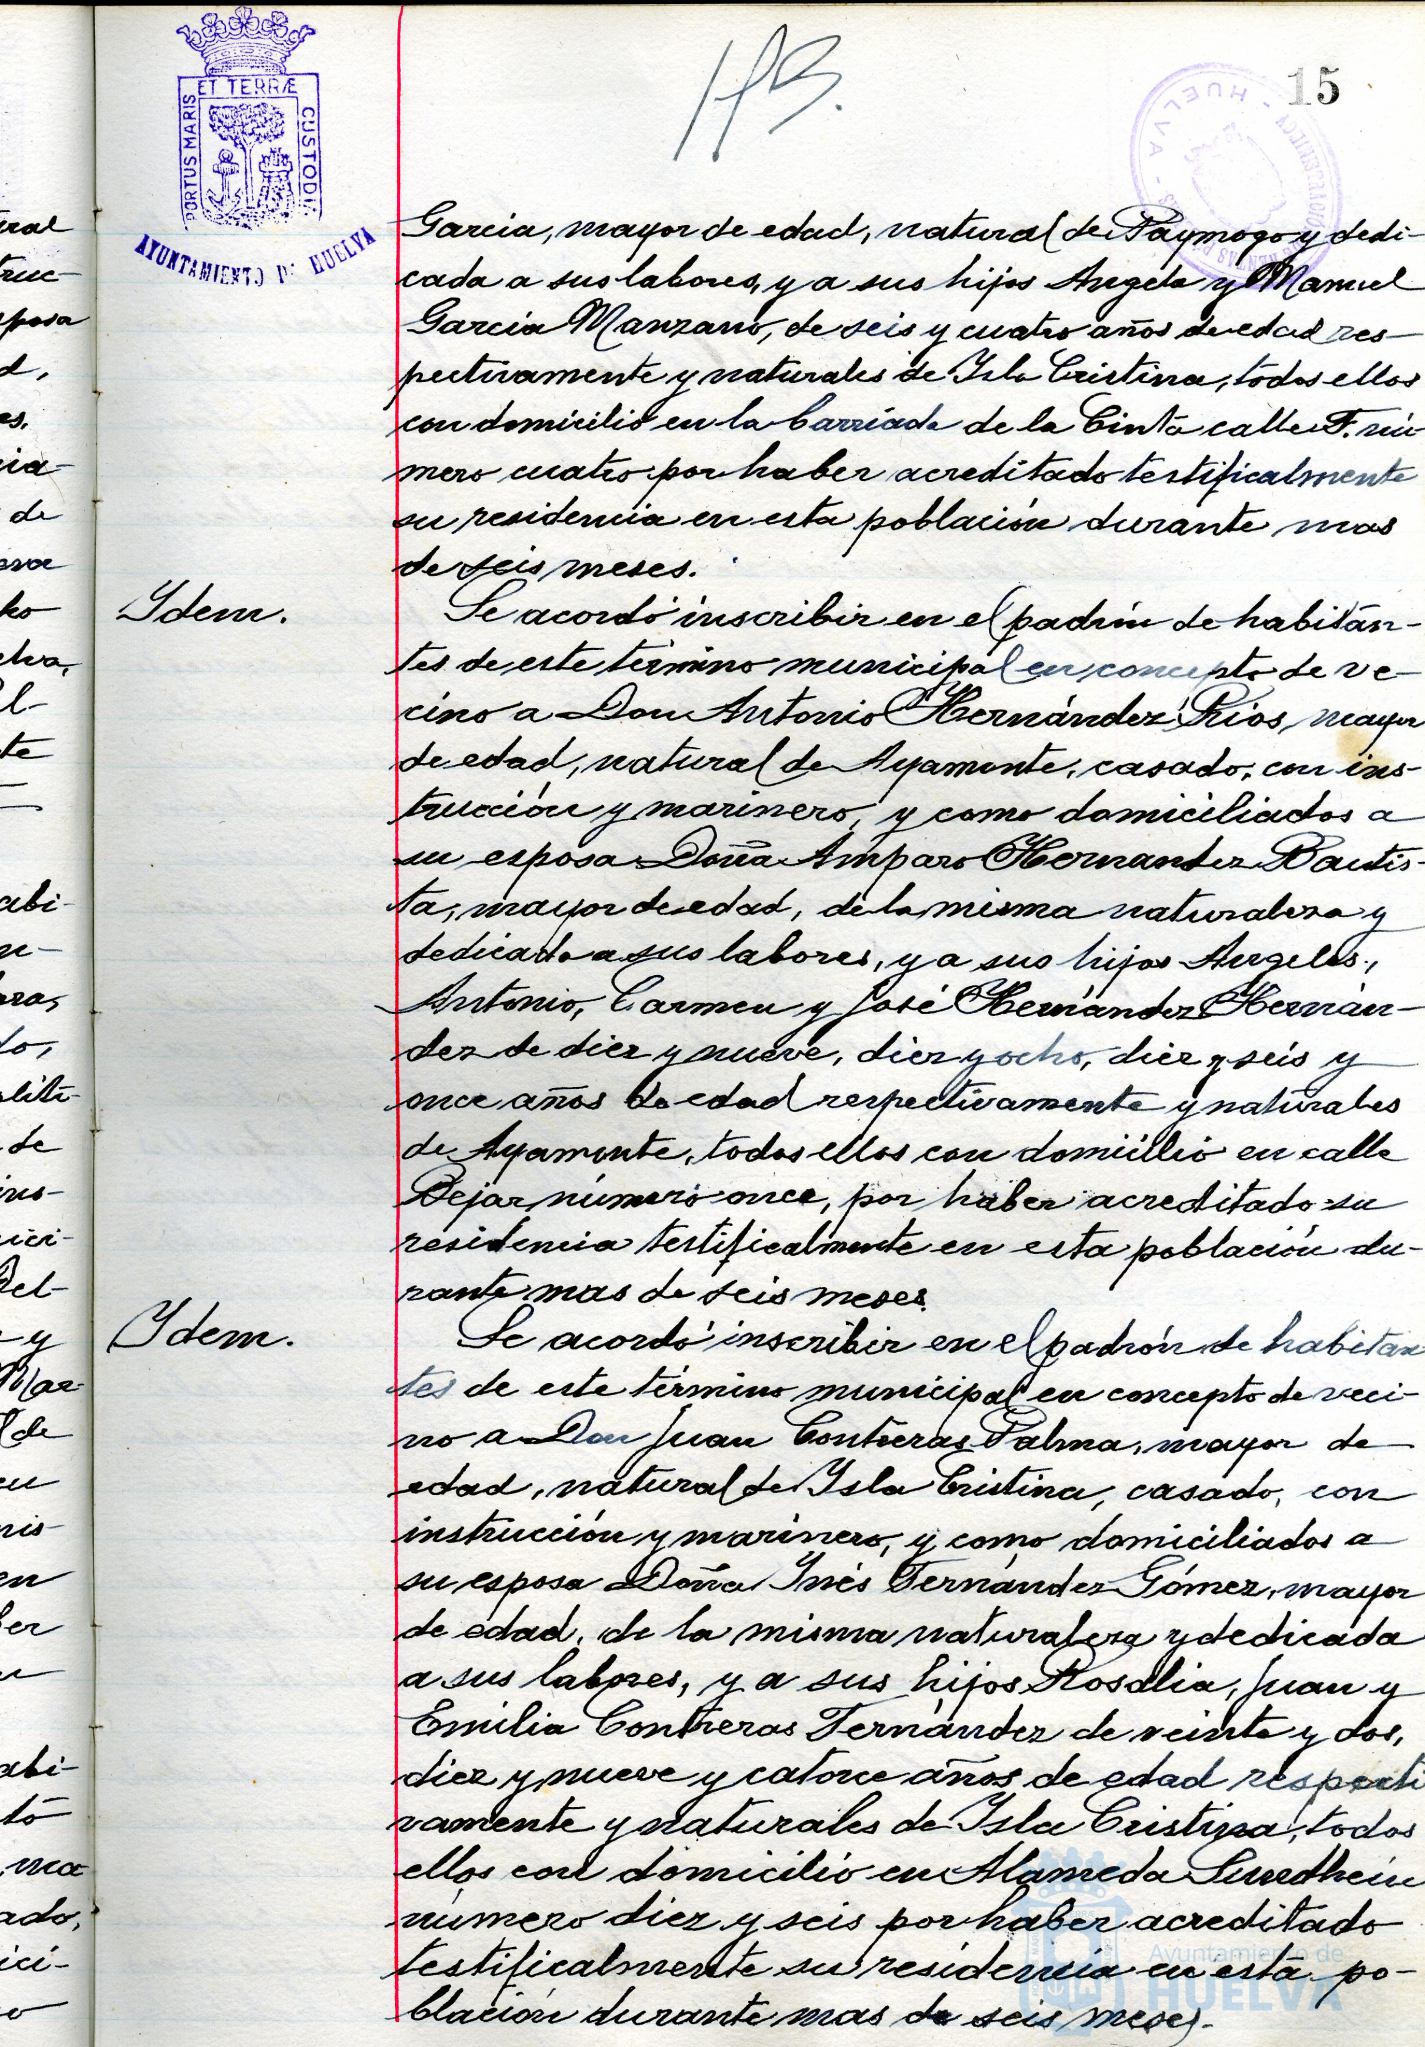 ET TERRÆ
PORTUS MARIS
CUSTODIA
AYUNTAMIENTO DE HUELVA
15
HUELVA
Garcia, mayor de edad, natural de Paymogo y dedi-
cada a sus labores, y a sus hijos Angela y Manuel
Garcia Manzano, de seis y cuatro años de edad res-
pectivamente y naturales de Isla Cristina, todos ellos
con domicilio en la barriada de la Cinta calle F. nú-
mero cuatro por haber acreditado testificalmente
su residencia en esta población durante mas
de seis meses.
Ydem.
Se acordó inscribir en el padrón de habitan-
tes de este término municipal en concepto de ve-
cino a Don Antonio Hernández Ríos, mayor
de edad, natural de Ayamonte, casado, con ins-
trucción y marinero, y como domiciliados a
su esposa Doña Amparo Hernandez Bautis-
ta, mayor de edad, de la misma naturaleza y
dedicada a sus labores, y a sus hijos Angeles,
Antonio, Carmen y José Hernández Hernán-
dez de diez y nueve, diez y ocho, diez y seis y
once años de edad respectivamente y naturales
de Ayamonte, todos ellos con domicilio en calle
Bejar número once, por haber acreditado su
residencia testificalmente en esta población du-
rante mas de seis meses.
Ydem.
Se acordó inscribir en el padrón de habitan
tes de este término municipal en concepto de veci-
no a Don Juan Contreras Palma, mayor de
edad, natural de Isla Cristina, casado, con
instrucción y marinero, y como domiciliados a
su esposa Doña Inés Fernández Gómez, mayor
de edad, de la misma naturaleza y dedicada
a sus labores, y a sus hijos Rosalia, Juan y
Emilia Contreras Fernández de veinte y dos,
diez y nueve y catorce años de edad respecti
vamente y naturales de Isla Cristina, todos
ellos con domicilio en Alameda Sundhein
número diez y seis por haber acreditado
testificalmente su residencia en esta po-
blación durante mas de seis meses.
Ayuntamiento de
HUELVA